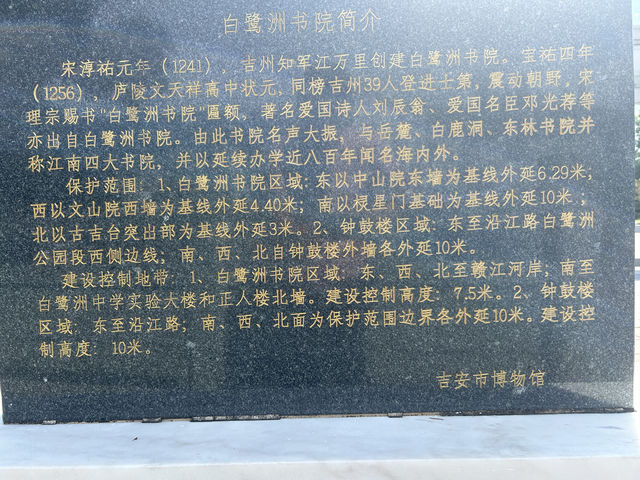 白鹭洲书院简介
宋淳祐元年（1241），吉州知军江万里创建白鹭洲书院。宝祐四年
（1256），庐陵文天祥高中状元，同榜吉州39人登进士第，震动朝野，宋
理宗赐书“白鹭洲书院”匾额，著名爱国诗人刘辰翁、爱国名臣邓光荐等
亦出自白鹭洲书院。由此书院名声大振，与岳麓、白鹿洞、东林书院并
称江南四大书院，并以延续办学近八百年闻名海内外。
保护范围：1、白鹭洲书院区域：东以中山院东墙为基线外延6.29米；
西以文山院西墙为基线外延4.40米；南以棂星门基础为基线外延10米；
北以古吉台突出部为基线外延3米。2、钟鼓楼区域：东至沿江路白鹭洲
公园段西侧边线；南、西、北自钟鼓楼外墙各外延10米。
建设控制地带：1、白鹭洲书院区域：东、西、北至赣江河岸；南至
白鹭洲中学实验大楼和正人楼北墙。建设控制高度：7.5米。2、钟鼓楼
区域：东至沿江路；南、西、北面为保护范围边界各外延10米。建设控
制高度：10米。
吉安市博物馆